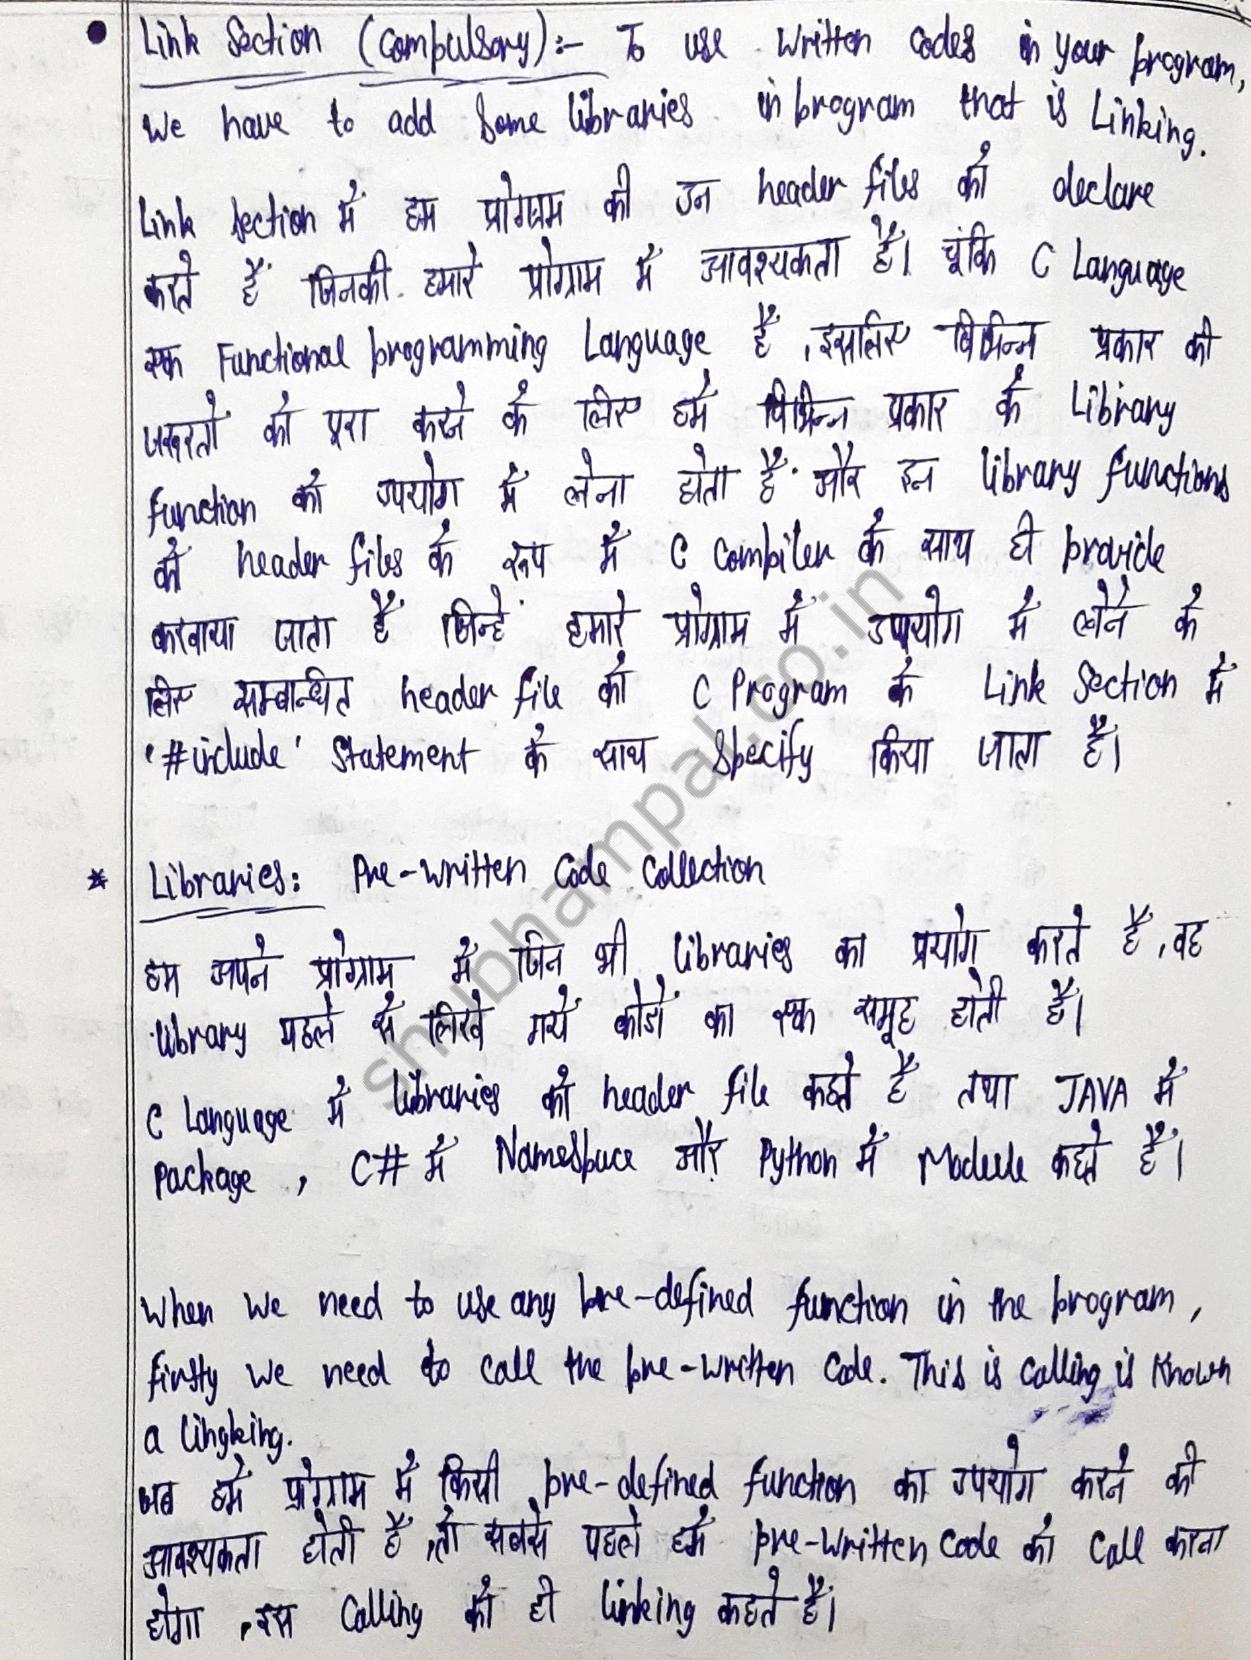 Link Section (Compulsory):- To use written codes in your program,
we have to add some libraries in program that is Linking.
Link Section में हम प्रोग्राम की उन header files को declare
करते हैं जिनकी हमारे प्रोग्राम में आवश्यकता है। चूंकि C Language
एक Functional programming Language है, इसलिए विभिन्न प्रकार की
जरूरतों को पूरा करने के लिए हमें विभिन्न प्रकार के Library
function को उपयोग में लेना होता है और इन library functions
को header files के रूप में C compiler के साथ ही provide
करवाया जाता है जिन्हें हमारे प्रोग्राम में उपयोग में लेने के
लिए सम्बान्धित header file को C Program के Link Section में
'#include' Statement के साथ Specify किया जाता है।
* Libraries: Pre-written Code Collection
हम अपने प्रोग्राम में जिन भी libraries का प्रयोग करते है, वह
library पहले से लिखे गये कोडों का एक समूह होती है।
C Language में libraries को header file कहते है तथा JAVA में
package, C# में Namespace और Python में Module कहते है।
When we need to use any pre-defined function in the program,
firstly we need to call the pre-written code. This is calling is known
a lingking.
जब हमें प्रोग्राम में किसी pre-defined function का उपयोग करने की
आवश्यकता होती है, तो सबसे पहले हमें pre-written code को call करना
होगा, इस calling को ही linking कहते है।
shubhampali.co.in